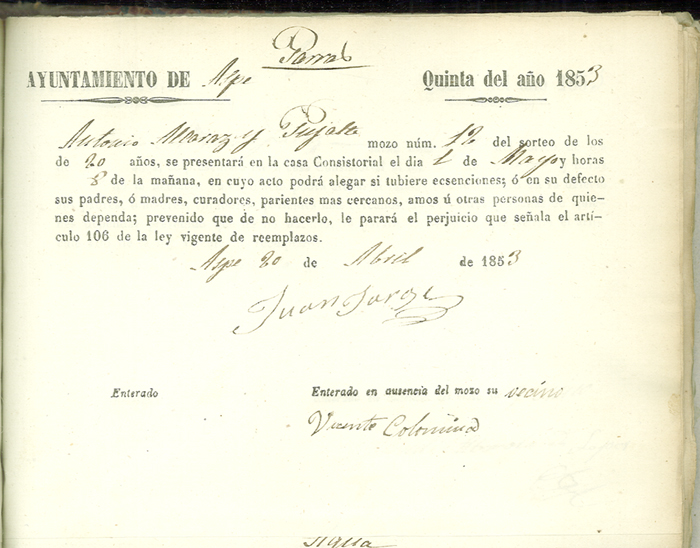 Parral
AYUNTAMIENTO DE Aspe Quinta del año 1853
Antonio Alcaraz y Pujalte mozo núm. 12 del sorteo de los
de 20 años, se presentará en la casa Consistorial el dia 1 de Mayo y horas
8 de la mañana, en cuyo acto podrá alegar si tubiere ecsenciones; ó en su defecto
sus padres, ó madres, curadores, parientes mas cercanos, amos ú otras personas de quie-
nes dependa; prevenido que de no hacerlo, le parará el perjuicio que señala el artí-
culo 106 de la ley vigente de reemplazos.
Aspe 20 de Abril de 1853
Juan Jorge
Enterado Enterado en ausencia del mozo su vecino
Vicente Colomina